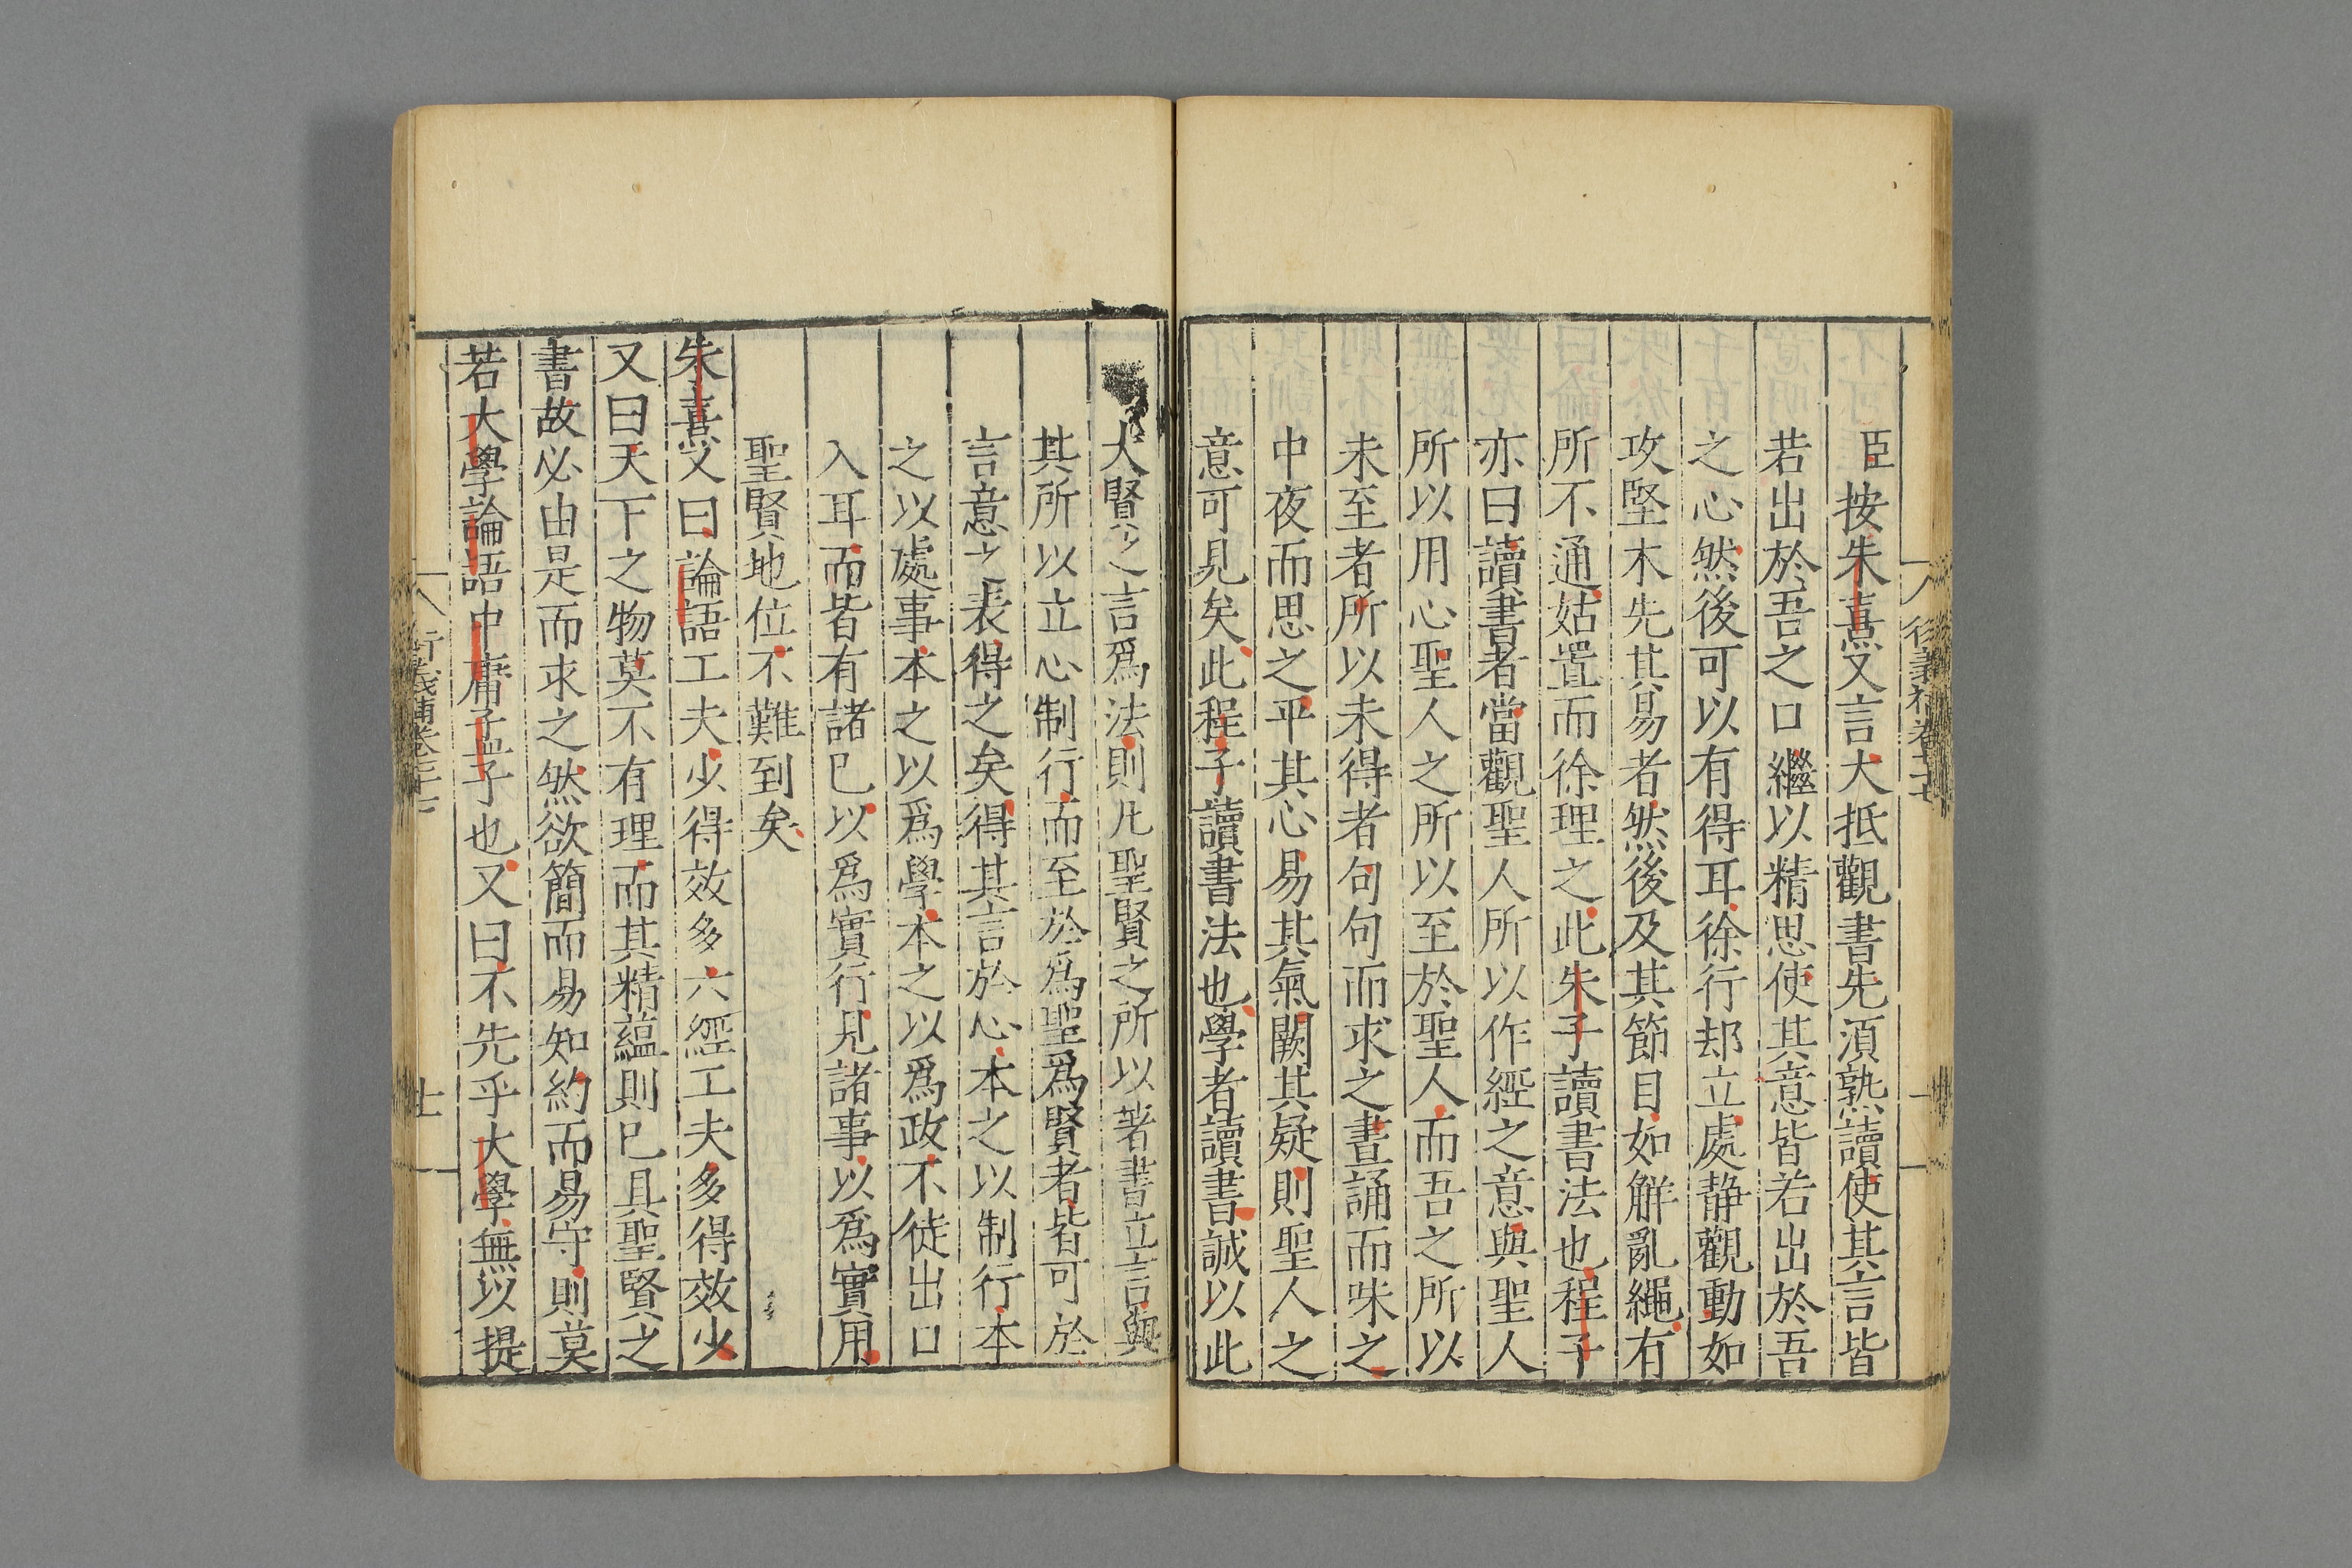 臣按朱熹又言大抵觀書先湏熟讀使其言皆
若出於吾之口繼以精思使其意皆若出於吾
之心然後可以有得耳徐行却立處静觀動如
攻堅木先其易者然後及其節目如觧亂繩有
所不通姑置而徐理之此朱子讀書法也程子
亦曰讀書者當觀聖人所以作經之意與聖人
所以用心聖人之所以至於聖人而吾之所以
未至者所以未得者句句而求之晝誦而味之
中夜而思之平其心易其氣闕其疑則聖人之
意可見矣此程子讀書法也學者讀書誠以此
大賢之言爲法則凡聖賢之所以著書立言與
其所以立心制行而至於爲聖爲賢者皆可於
言意之表得之矣得其言於心本之以制行本
之以處事本之以爲學本之以爲政不徒出口
入耳而皆有諸已以爲實行見諸事以爲實用
聖賢地位不難到矣
朱熹又曰論語工夫少得效多六經工夫多得效少
又曰天下之物莫不有理而其精蘊則已具聖賢之
書故必由是而求之然欲簡而易知約而易守則莫
若大學論語中庸孟子也又曰不先乎大學無以提
衍義補卷七十七
十一